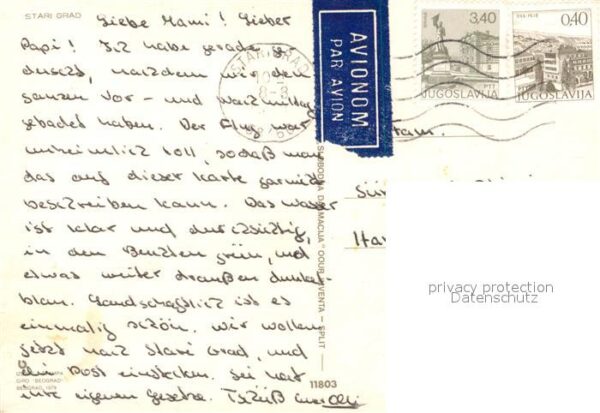 STARI GRAD
Liebe Mami! Lieber
Papi! Ich habe gerade ge-
duscht, nachdem wir den
ganzen Vor- und Nachmittag
gebadet haben. Der Flug war
unheimlich toll, sodaß man
das auf dieser Karte garnicht
beschreiben kann. Das Wasser
ist klar und durchsichtig,
in den Buchten grün, und
etwas weiter draußen dunkel-
blau. Landschaftlich ist es
einmalig schön. Wir wollen
jetzt nach Stari Grad, und
die Post einstecken. Sie hat
ihre eigenen Gesetze. Tschüß
AVIONOM
PAR AVION
STARI GRAD
8-8
3,40
JUGOSLAVIJA
0,40
JUGOSLAVIJA
Fam.
"SLOBODNA DALMACIJA" OOUR - SPLIT
11803
GIRO "BEOGRAD"
BEOGRAD, 1979
privacy protection
Datenschutz